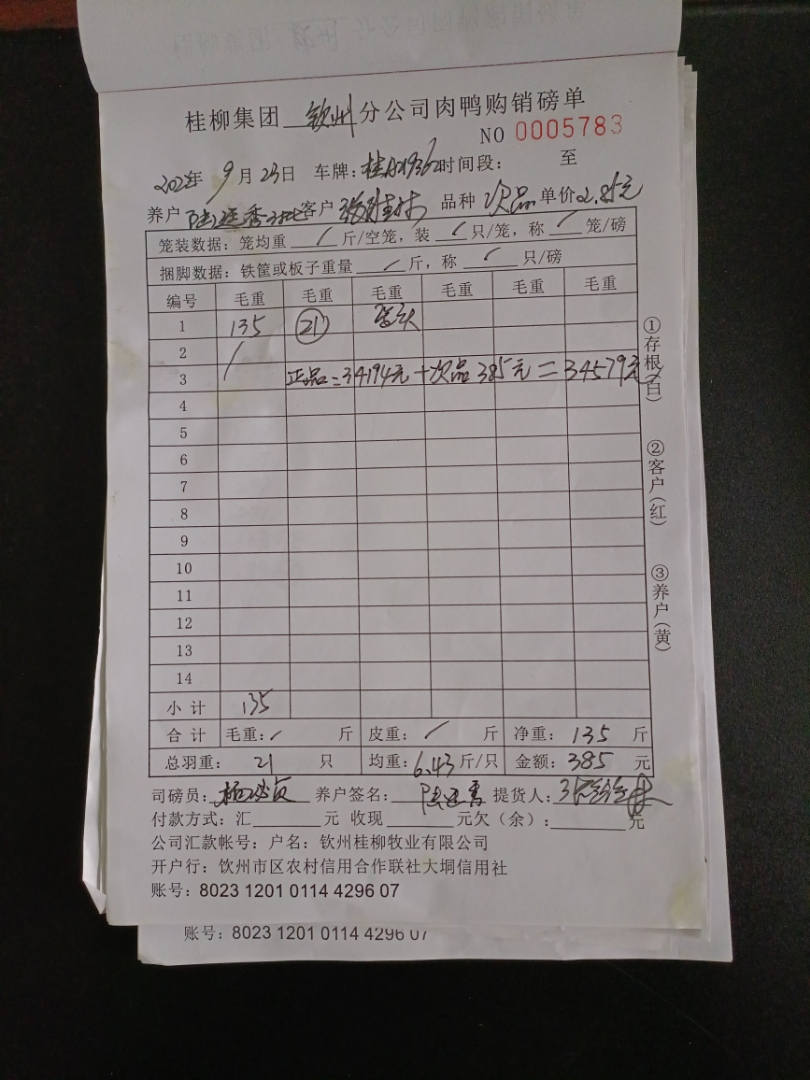 桂柳集团 钦州 分公司肉鸭购销磅单
NO 0005783
2022年 9月23日 车牌: 时间段: 至
养户 客户 品种 次品 单价 2.85元
笼装数据:笼均重 / 斤/空笼,装 / 只/笼,称 / 笼/磅
捆脚数据:铁筐或板子重量 / 斤,称 / 只/磅
编号 毛重 毛重 毛重 毛重 毛重 毛重
1 135 21
2 /
3 正品=34194元+次品385元=34579元
4
5
6
7
8
9
10
11
12
13
14
小计 135
合计 毛重:/ 斤 皮重:/ 斤 净重:135 斤
总羽重: 21 只 均重:6.43斤/只 金额:385 元
①存根(白)
②客户(红)
③养户(黄)
司磅员: 养户签名: 提货人:
付款方式:汇 元 收现 元欠(余): 元
公司汇款帐号:户名:钦州桂柳牧业有限公司
开户行:钦州市区农村信用合作联社大垌信用社
账号:8023 1201 0114 4296 07
账号:8023 1201 0114 4296 07